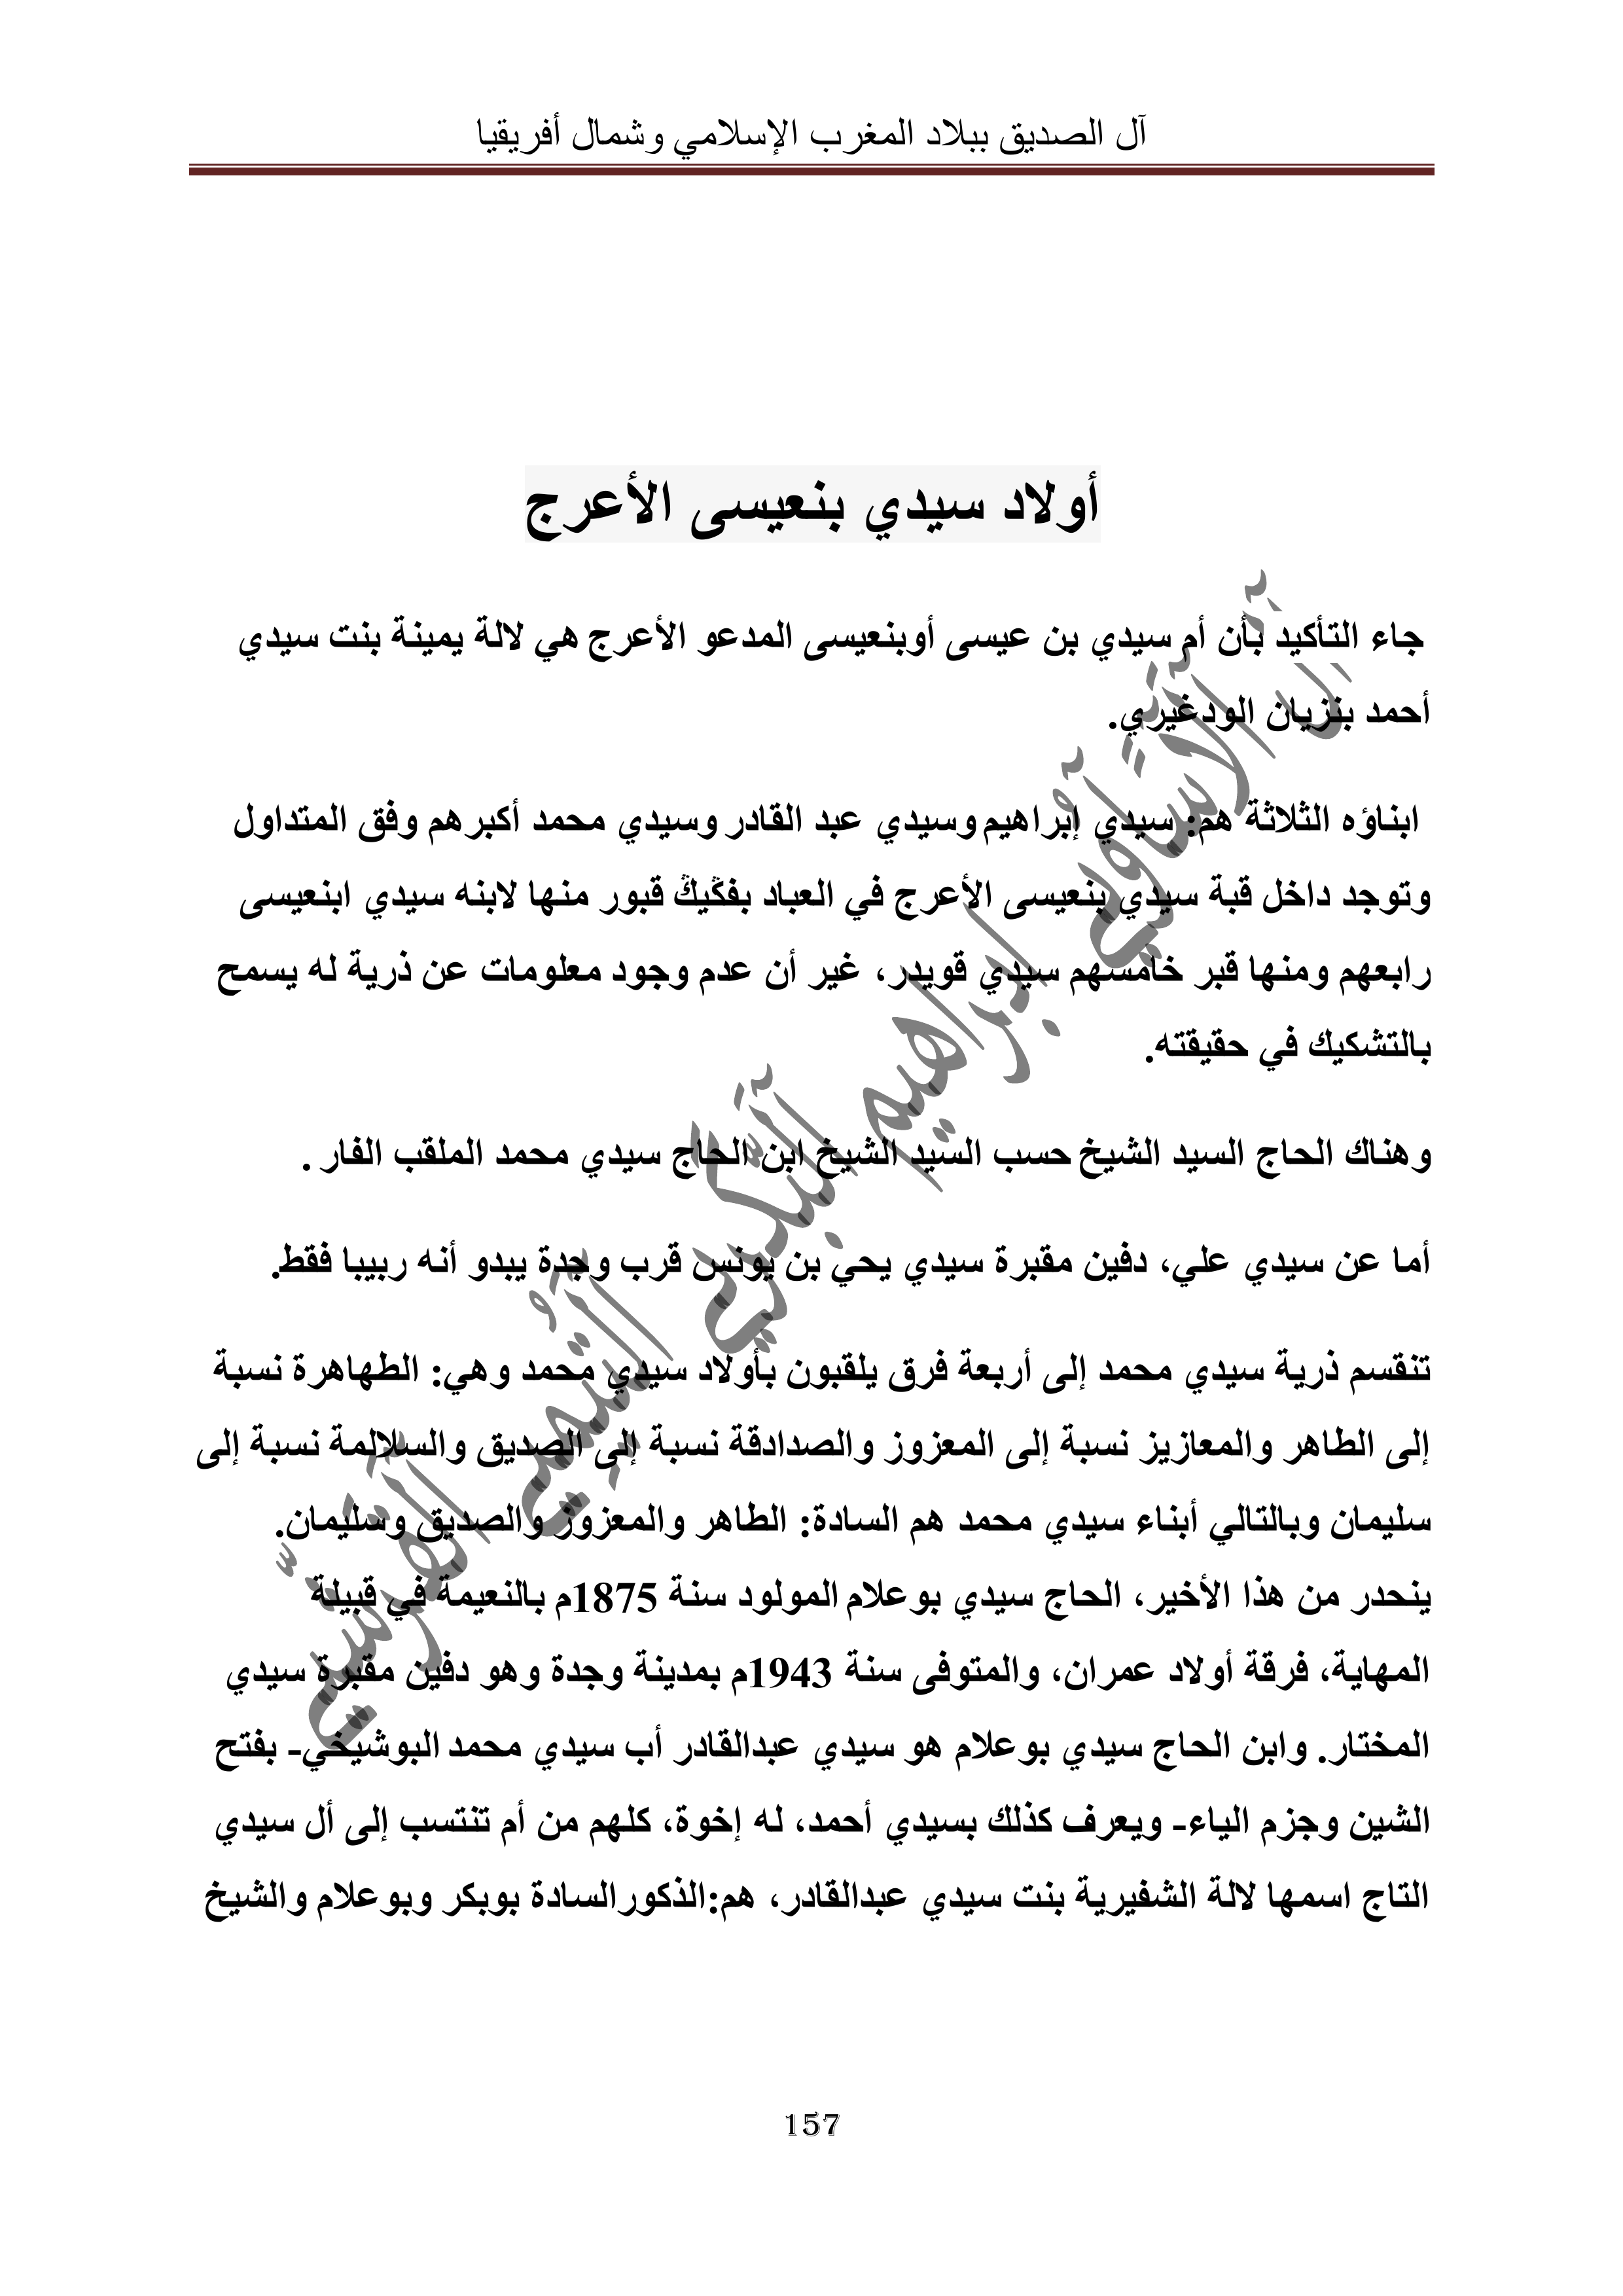 آل الصديق ببلاد المغرب الإسلامي وشمال أفريقيا
أولاد سيدي بنعيسى الأعرج
جاء التأكيد بأن أم سيدي بن عيسى أوبنعيسى المدعو الأعرج هي لالة يمينة بنت سيدي
أحمد بنزيان الودغيري.
ابناؤه الثلاثة هم: سيدي إبراهيم وسيدي عبد القادر وسيدي محمد أكبرهم وفق المتداول
وتوجد داخل قبة سيدي بنعيسى الأعرج في العباد بفݣيݣ قبور منها لابنه سيدي ابنعيسى
رابعهم ومنها قبر خامسهم سيدي قويدر، غير أن عدم وجود معلومات عن ذرية له يسمح
بالتشكيك في حقيقته.
وهناك الحاج السيد الشيخ حسب السيد الشيخ ابن الحاج سيدي محمد الملقب الفار .
أما عن سيدي علي، دفين مقبرة سيدي يحي بن يونس قرب وجدة يبدو أنه ربيبا فقط.
تنقسم ذرية سيدي محمد إلى أربعة فرق يلقبون بأولاد سيدي محمد وهي: الطهاهرة نسبة
إلى الطاهر والمعازيز نسبة إلى المعزوز والصدادقة نسبة إلى الصديق والسلالمة نسبة إلى
سليمان وبالتالي أبناء سيدي محمد هم السادة: الطاهر والمعزوز والصديق وسليمان.
ينحدر من هذا الأخير، الحاج سيدي بوعلام المولود سنة 1875م بالنعيمة في قبيلة
المهاية، فرقة أولاد عمران، والمتوفى سنة 1943م بمدينة وجدة وهو دفين مقبرة سيدي
المختار. وابن الحاج سيدي بوعلام هو سيدي عبدالقادر أب سيدي محمد البوشيخي- بفتح
الشين وجزم الياء- ويعرف كذلك بسيدي أحمد، له إخوة، كلهم من أم تنتسب إلى أل سيدي
التاج اسمها لالة الشفيرية بنت سيدي عبدالقادر، هم:الذكورالسادة بوبكر وبوعلام والشيخ
157